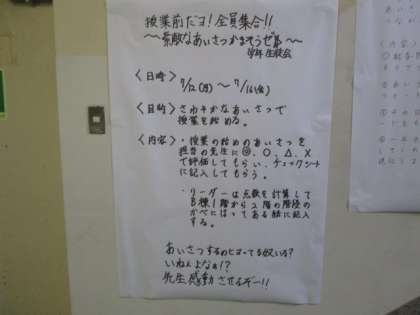 授業前だヨ!全員集合!!
〜素敵なあいさつかまそうぜ〜
学年生徒会
〈日時〉 7/12(月) 〜 7/16(金)
〈目的〉 さわやかなあいさつで
授業を始める。
〈内容〉・授業の始めのあいさつを
担当の先生に◎、○、△、×
で評価してもらい、チェックシート
に記入してもらう。
・リーダーは点数を計算して
B棟1階から2階の階段の
かべにはってある紙に記入
する。
あいさつするのヒヨってる奴いる?
いねぇよなぁ!?
先生感動させるぞー!!